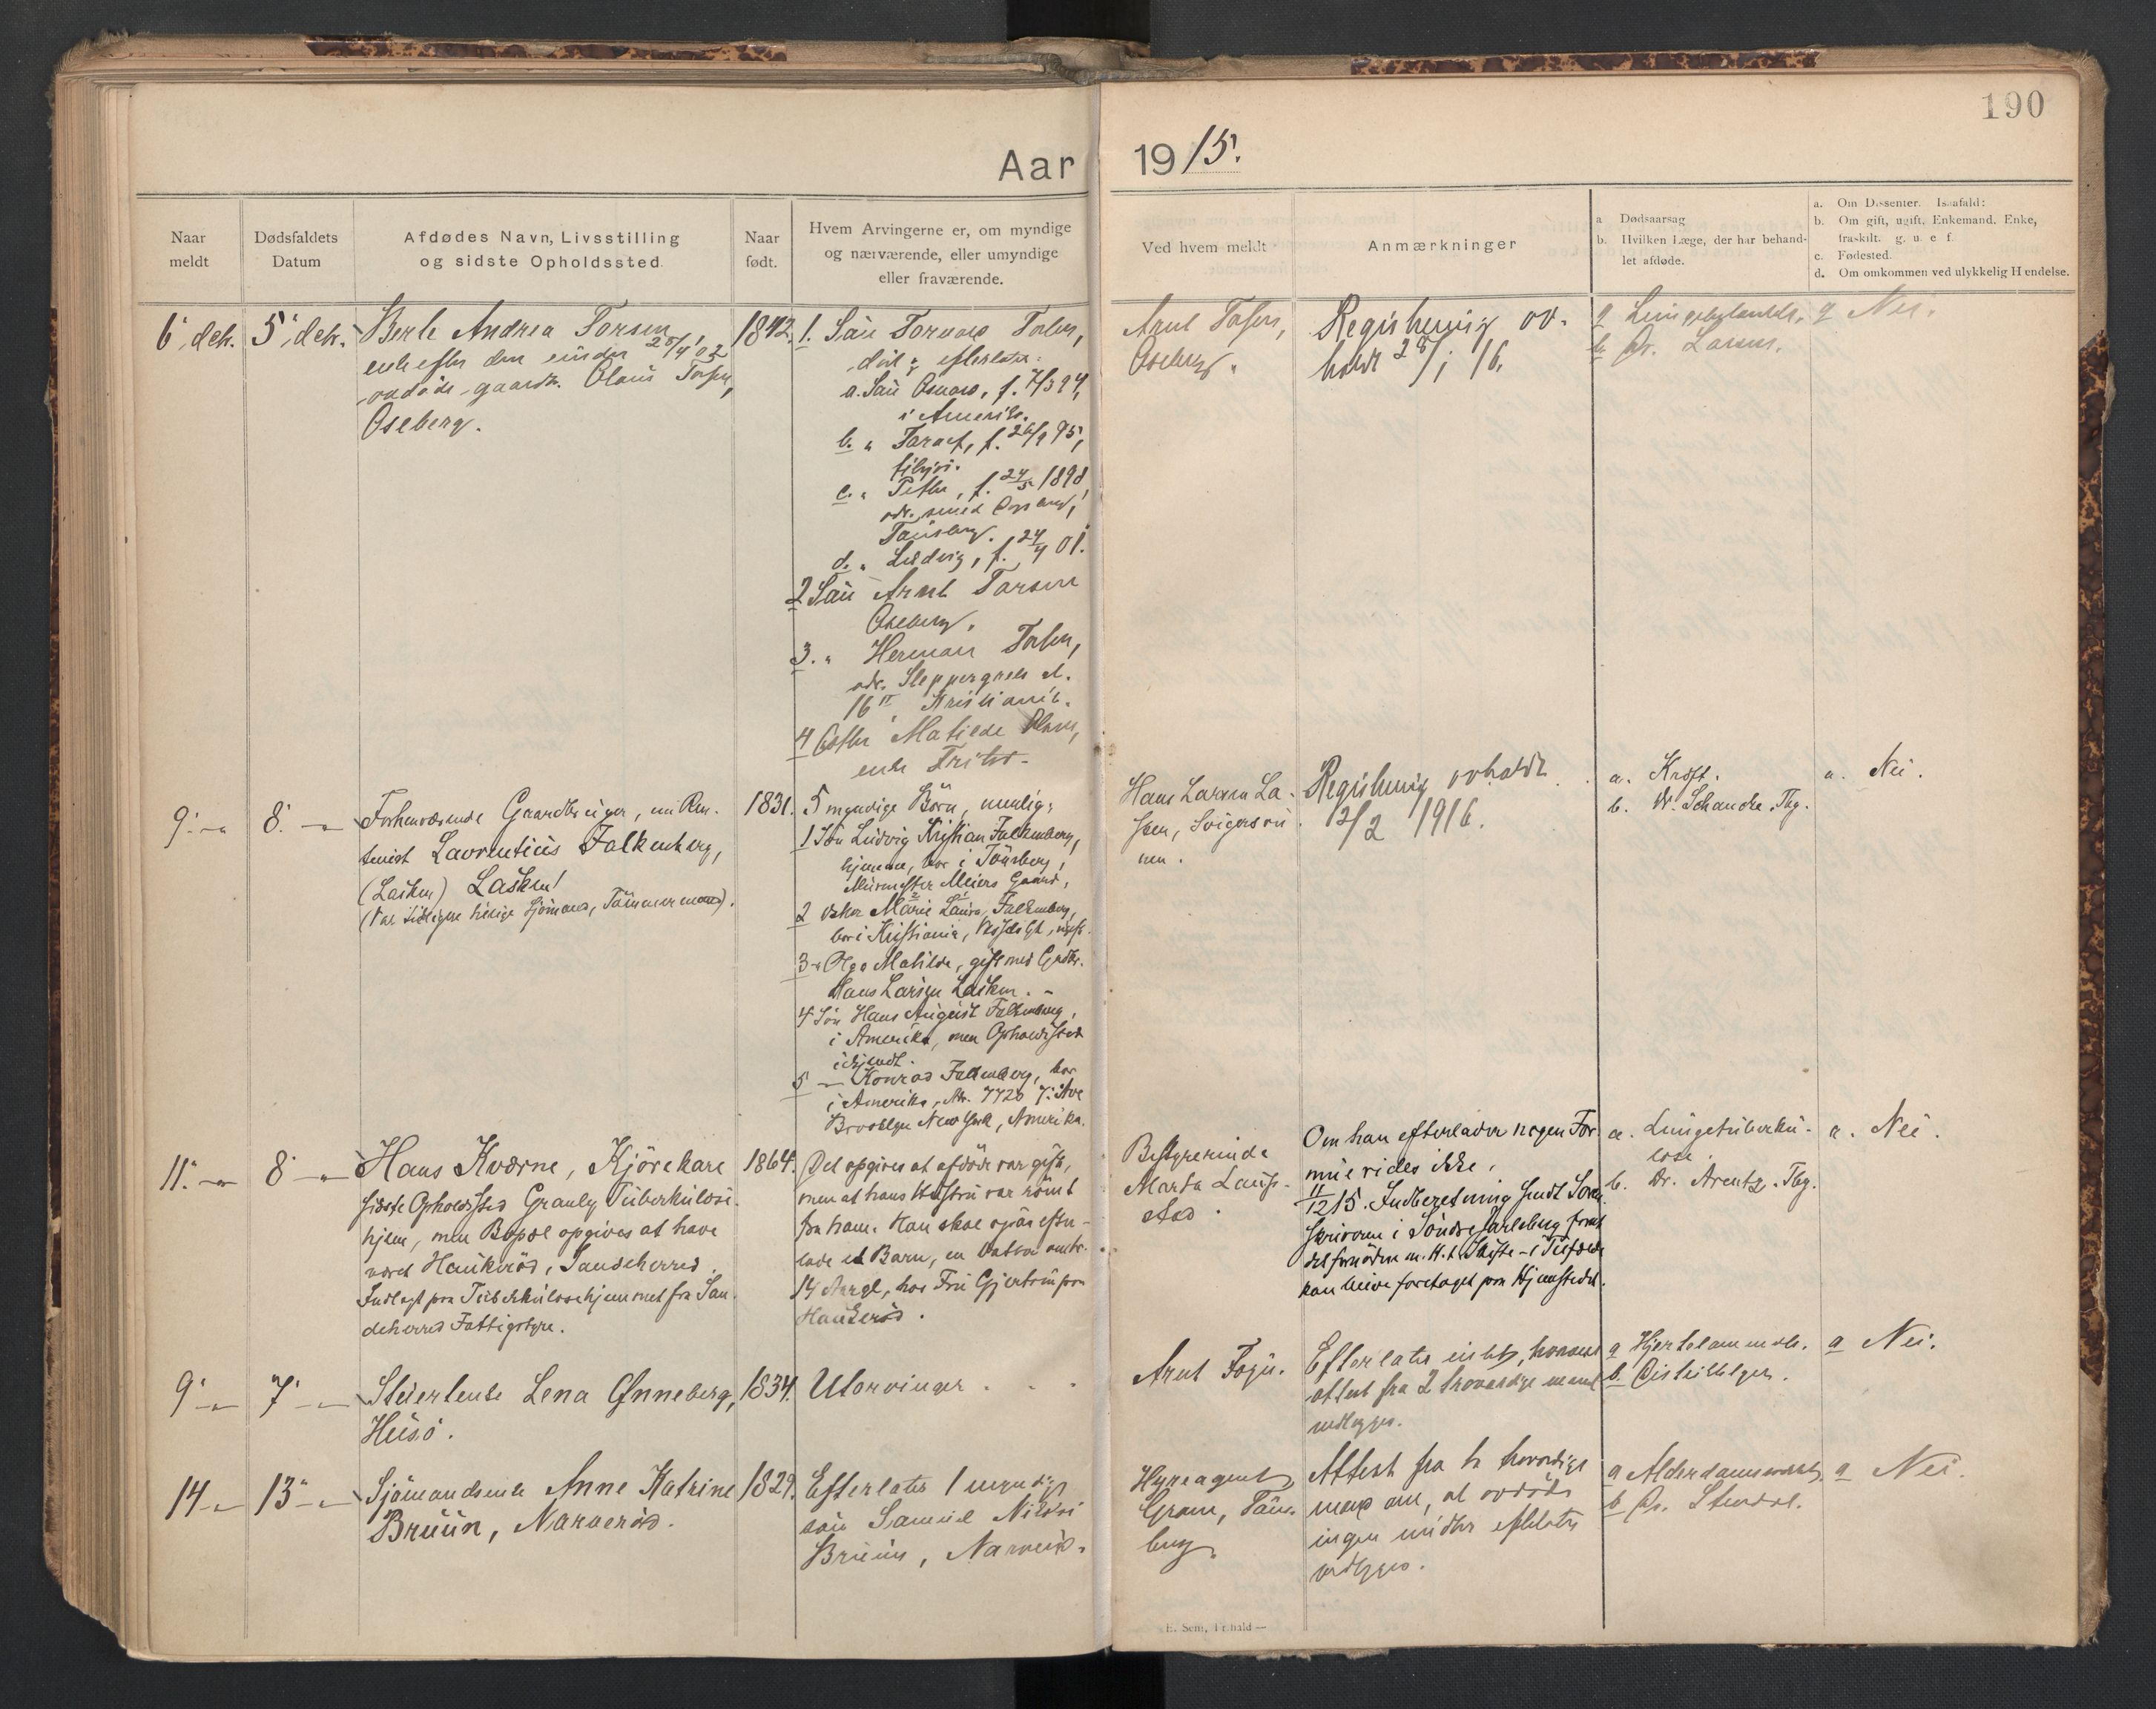 190
Aar 1915.
Naar meldt
Dødsfaldets Datum
Afdødes Navn, Livsstilling og sidste Opholdssted
Naar født.
Hvem Arvingerne er, om myndige og nærværende, eller umyndige eller fraværende.
Ved hvem meldt
Anmærkninger
a Dødsaarsag
b. Hvilken Læge, der har behandlet afdøde.
a. Om Dissenter. Isaafald:
b. Om gift, ugift, Enkemand, Enke, fraskilt. g. u. e f.
c. Fødested.
d. Om omkommen ved ulykkelig Hændelse.
6' dek.
5' dek.
Berte Andrea Torsen
enke efter den
avdøde gaardbr. Olaus Torsen,
Oseberg.
1842.
1. Søn Torvald Torsen,
død efterlater:
a. Søn Osvald, f. 7/3 94,
i Amerika.
b. " Toralf, f. 26/9 95,
tilsjøs.
c. " Petter, f. 24/5 1898,
adr. smed
Tønsberg.
d. " Ludvig, f. 24/4 01.
2 Søn Arnt Torsen
Oseberg.
3. " Herman Torsen,
adr. Sleppegrells
16 Kristiania.
4 Datter Matilde Olsen,
enke
Arnt Torsen,
Oseberg.
Registrering avholdt 28/1 16.
a Lungebetændelse.
b. Dr. Larsen.
a Nei.
9.' —"—
8. —"—
Forhenværende Gaardbruger, nu Rentenist Lavrentius Falkenberg,
(Lasken) Lasken!
(Var tidligere Sjömand, Tömmermand).
1831.
5 myndige Börn, nemlig:
1 Sön Ludvig Kristian Falkenberg,
hjemme, bor i Tönsberg,
Murmester Meiers Gaard,
2 Datter Marie Laura Falkenberg,
bor i Kristiania, ugift.
3 " Olga Matilde, gift med Gadbr.
Hans Larsen Lasken. -
4 Sön Hans August Falkenberg,
i Amerika, men Opholdssted
5 — Konrad Falkenberg, bor
i Amerika, Adr. 7720 7. Ave
Brooklyn New York, Amerika.
Hans Larsen Lasken, Svigersönnen.
Registrering avholdt 12/2 1916.
a. Kræft.
b. Dr. Schancke. Tbg.
a. Nei.
11.' —"—
8' —"—
Hans Kværne, Kjörekarl
sidste Opholdssted Granly Tuberkulosehjem, men Bopæl opgives at have
været Haukeröd, Sandeherred.
Indlagt paa Tuberkulosehjemmet fra Sandeherred Fattigstyre.
1864.
Det opgives at afdöde var gift,
men at hans Hustru var römt
fra ham. Han skal ogsaa efterlade et Barn, en Datter omtr.
14 Aar gl, hos Fru
Haukeröd.
Bestyrerinde
Marta
Om han efterlader nogen Formue vides ikke.
11/12 15. Indberetning sendt Sorenskriveren i Söndre Jarlsberg
kan blive foretaget paa Hjemstedet.
a. Lungetuberkulose.
b. Dr. Arentz. Tbg.
a. Nei.
9' —"—
7' —"—
Lena Gunneberg,
Husö.
1834.
Utarvinger.
Arnt Foyn.
Efterlater intet, hvorom
attest fra 2 troværdige mænd
vedlægges.
a Hjertelammelse.
b. Distriktslægen.
a Nei.
14 —"—
13' —"—
Sjömandsenke Anne Katrine
Bruun, Narveröd.
1829.
Efterlater 1 myndig
søn Samuel
Bruun, Narveröd.
Hyreagent
Gram, Tønsberg.
Attest fra to troværdige
mænd om, at avdøde
ingen midler efterlater
vedlægges.
a Alderdomssvakhet.
b Dr. Stendal.
a Nei.
E. Sem, Fr.hald —